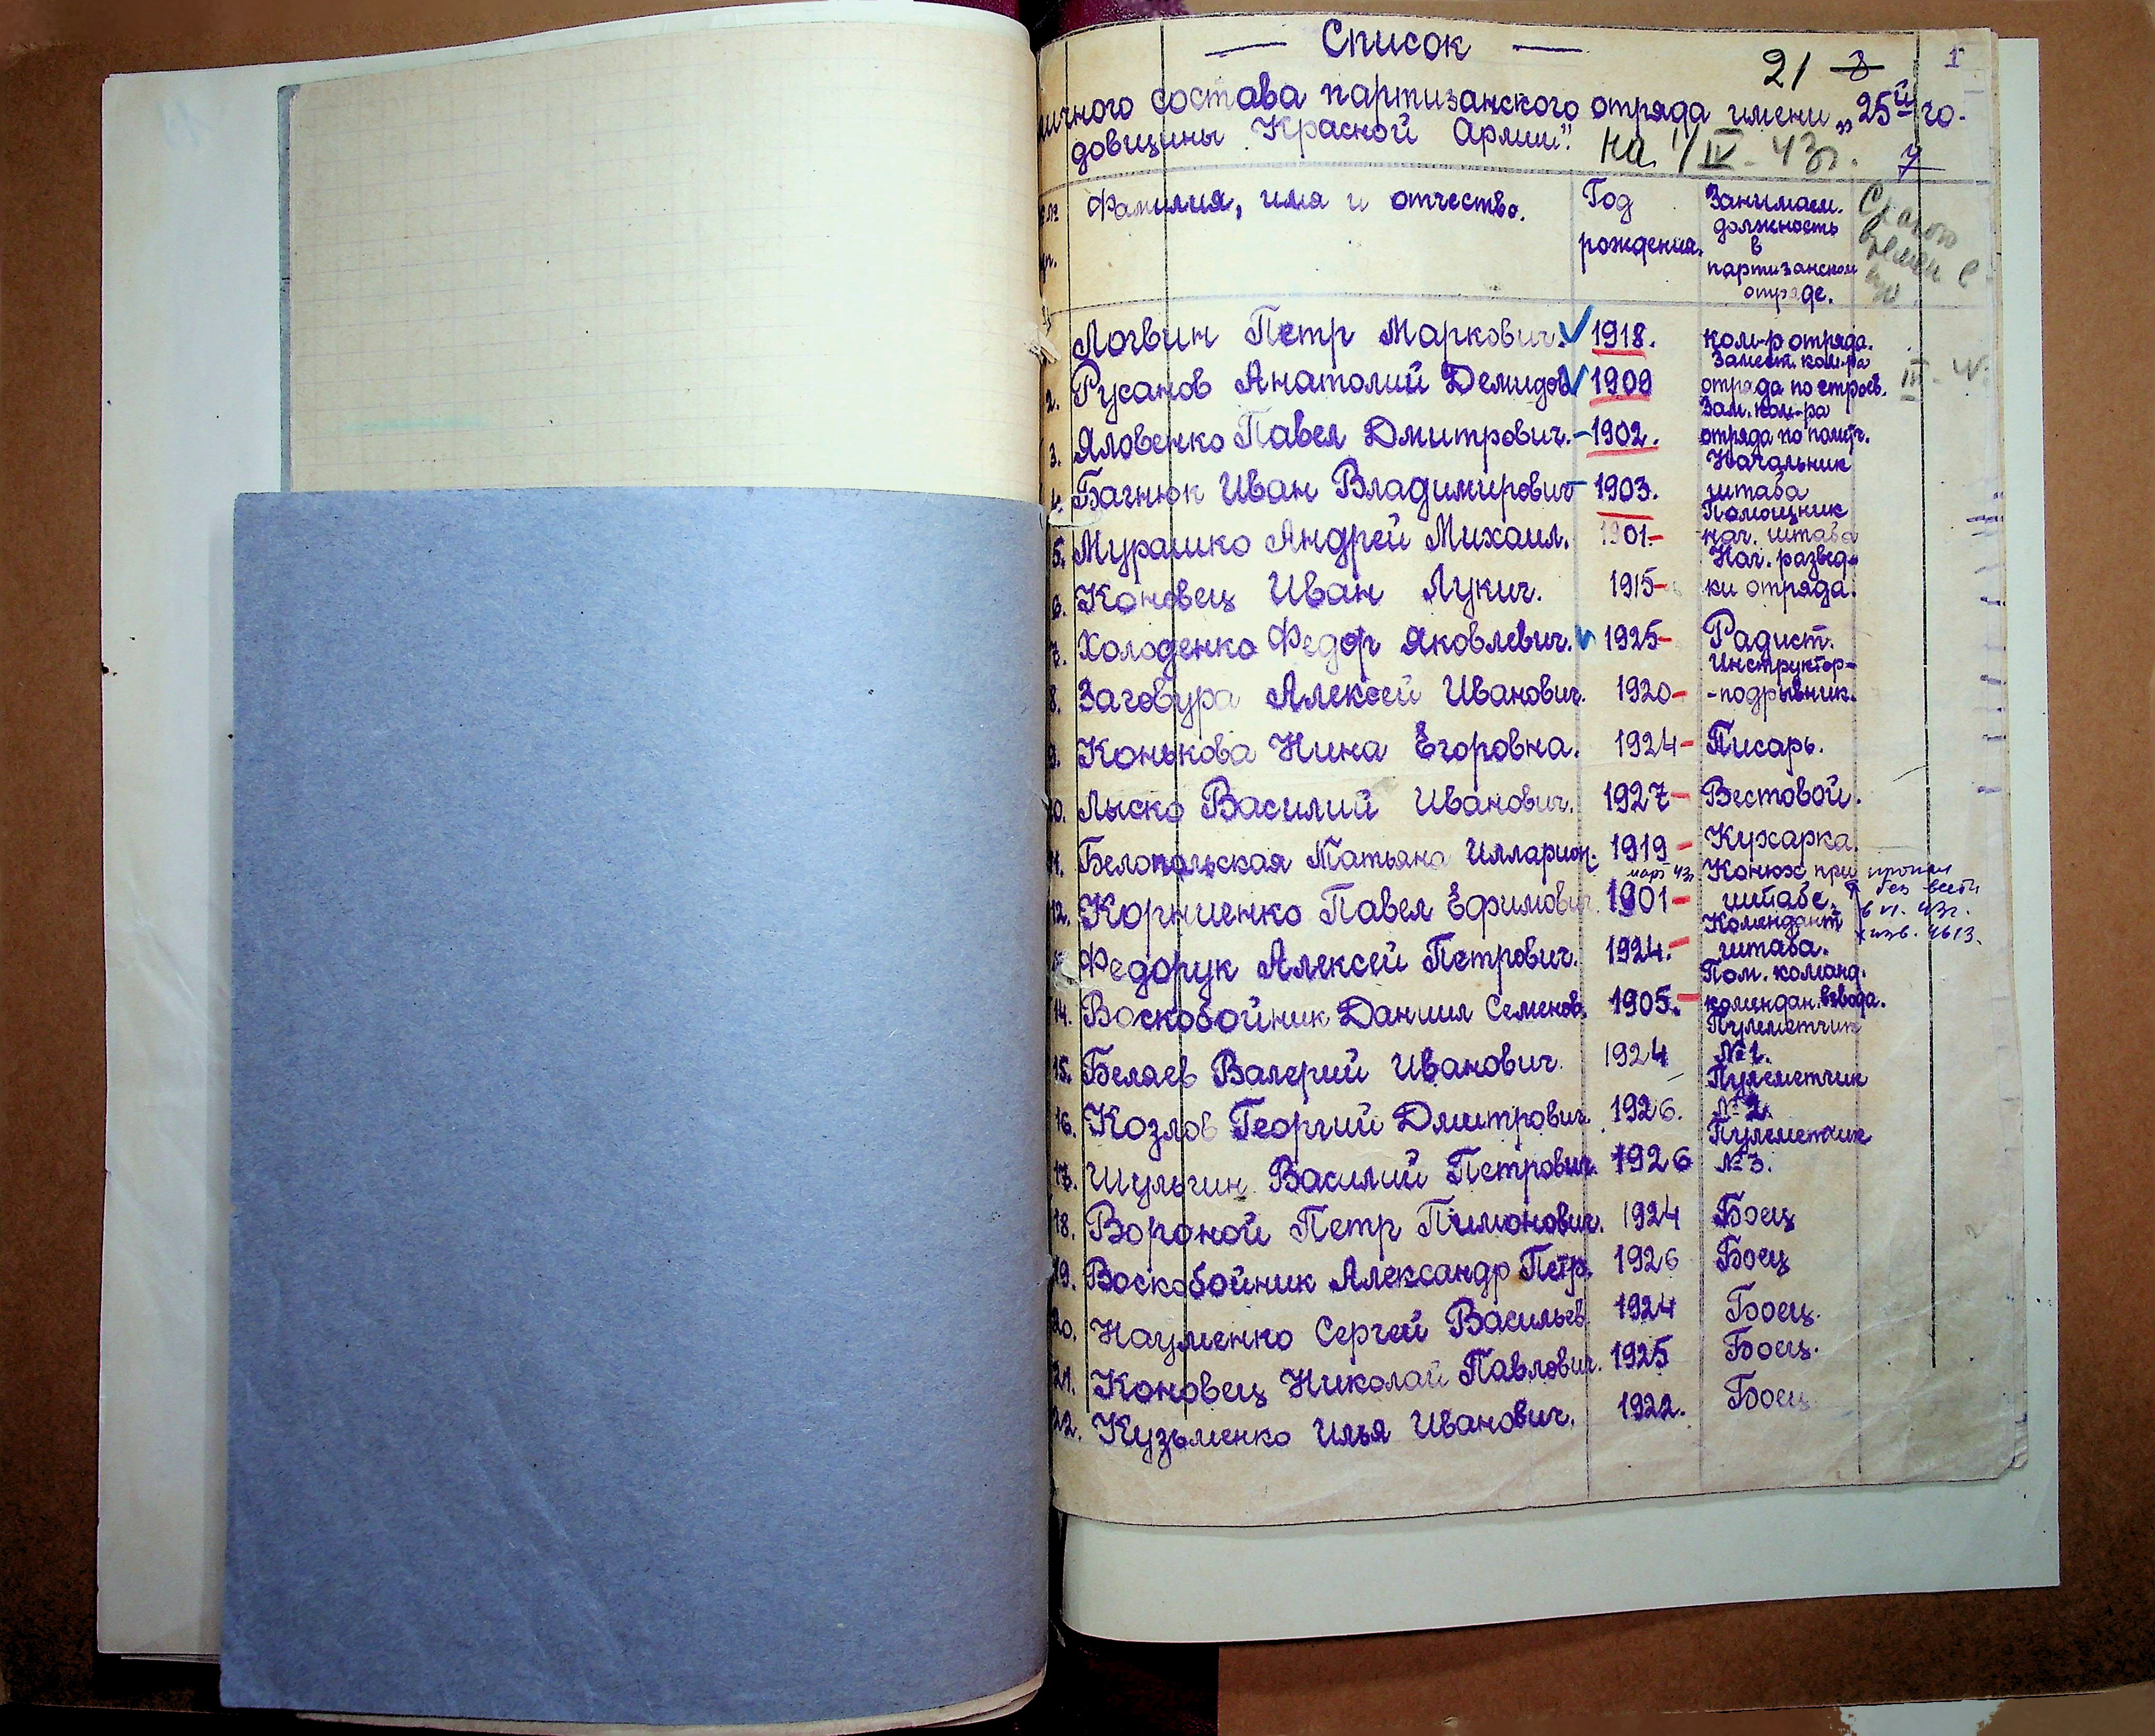 — Список —
21 3 1
личного состава партизанского отряда имени „25й го-
довщины Красной Армии". на 1/IV-43г.
Фамилия, имя и отчество. Год рождения. Занимаем. должность в партизанском отряде. С какого времен в
Логвин Петр Маркович. 1918. ком-р отряда.
2. Русанов Анатолий Демидов 1909 Замест. ком-ра отряда по строев.
3. Яловенко Павел Дмитрович. - 1902. Зам. ком-ра отряда по полит.
4. Багнюк Иван Владимирович - 1903. Начальник штаба
5. Мурашко Андрей Михаил. 1901- Помощник нач. штаба
6. Коновец Иван Лукич. 1915- Нач. развед-ки отряда.
7. Холоденко Федор Яковлевич. 1925- Радист.
8. Заговура Алексей Иванович. 1920- Инструктор--подрывник.
9. Конькова Нина Егоровна. 1924- Писарь.
10. Лыско Василий Иванович. 1927- Вестовой.
11. Белопольская Татьяна Илларион. 1919- Кухарка.
12. Корниенко Павел Ефимович. март 43г. 1901- Конюх при штабе. пропал без вести в VI. 43г. изв. 4613.
Федорук Алексей Петрович. 1924.- Комендант штаба.
14. Воскобойник Даниил Семенов. 1905.- Пом. команд. комендан. взвода.
15. Беляев Валерий Иванович. 1924 Пулеметчик №1.
16. Козлов Георгий Дмитрович 1926. Пулеметчик №2
17. Шульгин Василий Петрович. 1926 Пулеметчик №3.
18. Вороной Петр Пимонович. 1924 Боец
19. Воскобойник Александр Петр. 1926 Боец
20. Науменко Сергей Васильев 1924 Боец.
21. Коновец Николай Павлович. 1925 Боец.
22. Кузьменко Илья Иванович. 1922. Боец